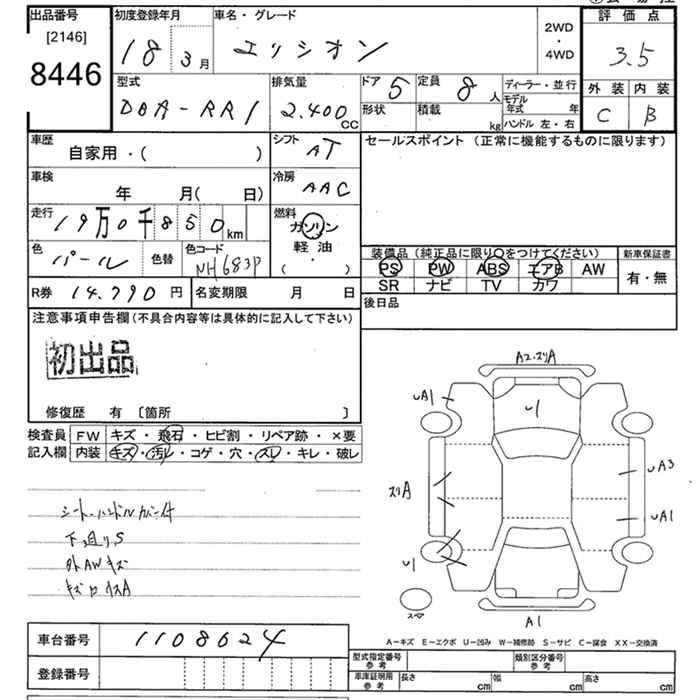 出品番号
[2146]
8446
初度登録年月
18 3月
車名・グレード
エリシオン
2WD
・
4WD
評価点
3.5
外装 内装
C B
型式
DBA-RR1
排気量
2.400 CC
ドア 5
形状
定員 8 人
積載 kg
ディーラー・並行
モデル年式 年
ハンドル 左・右
車歴
自家用・( )
シフト
AT
セールスポイント (正常に機能するものに限ります)
車検
年 月( 日)
冷房
AAC
走行
19万0千850km
燃料
ガソリン
軽油・
( )
色
パール
色替
色コード
NH683P
装備品 (純正品に限り○をつけてください)
PS PW ABS エアB AW
SR ナビ TV カワ
新車保証書
有・無
R券 14.790 円
名変期限 月 日
後日品
注意事項申告欄(不具合内容等は具体的に記入して下さい)
初出品
修復歴 有 〔箇所 〕
検査員
記入欄
FW キズ・飛石・ヒビ割・リペア跡・×要
内装 キズ・汚れ・コゲ・穴・スレ・キレ・破レ
シート・ハンドルカバー付
下廻りS
外AWキズ
A2・スリA
U1
UA1
スリA
UA3
UA1
U1
スペア
A1
A−キズ E−エクボ U−凹み W−補修跡 S−サビ C−腐食 XX−交換済
車台番号
1108624
登録番号
型式指定番号
参考
類別区分番号
参考
車庫証明用
参考
長さ cm
幅 cm
高さ cm